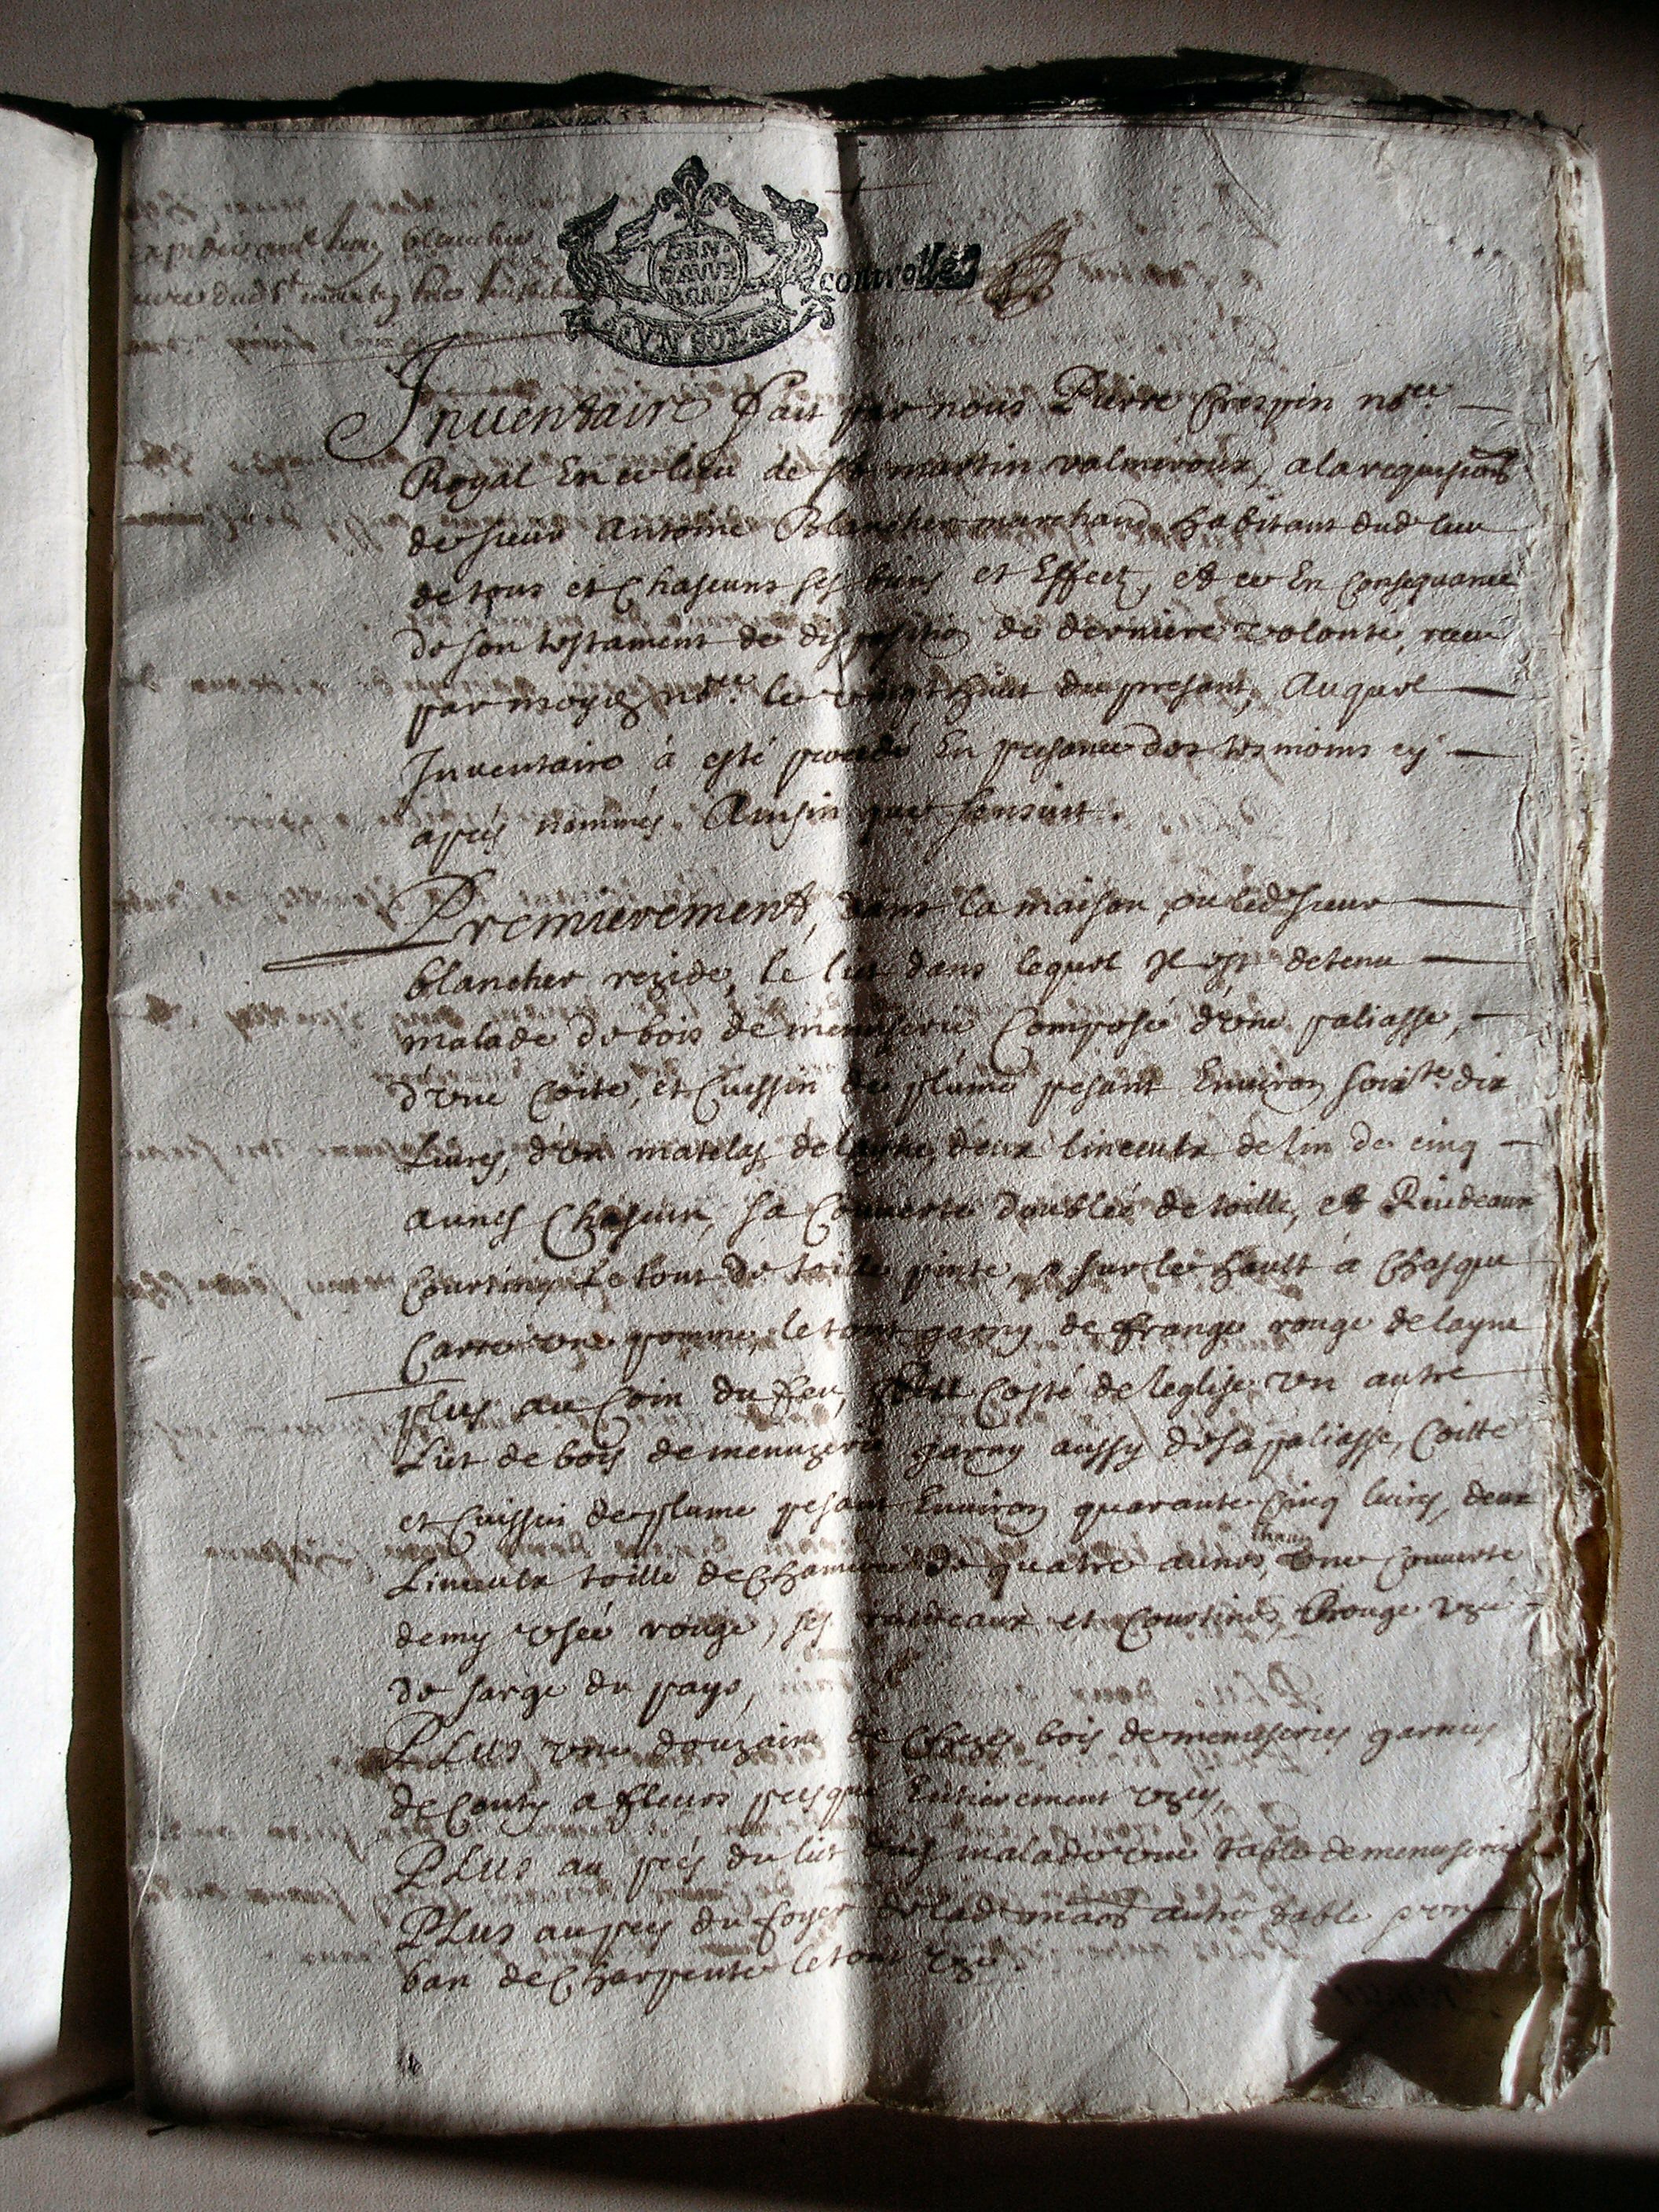 GEN
DAUVE
RGNE
UN SOL
controllé
Inuentaire fait par nous Pierre Crespin no.re
Royal En ce lieu de st martin valmeroux, a la requisition
de sieur Antoine Blancher marchand habitant dud lieu
de tous et Chascuns ses biens et Effect, et ce En Consequance
de son testament de disposition de derniere volonté, receu
par moyd no.re le vingt huit du presant, Auquel
Inuentaire à esté procedé En presance des tesmoins cy
aprés nommés. Ainsin que sensuit.
Premierement, dans la maison ou led sieur
blancher rezide, le lit dans lequel Il est detenu
malade de bois de menuserie Composé d'vne paliasse,
d'vne Coite, et Cuissin de plume pesant Enuiron soixte dix
Liures, d'vn matelas de layne, deux linceulx de lin de cinq
aunes Chascun, sa Couuerte doublée de toille, et Rideaux
Courtines Le tout de toille pinte, sur le hault a Chasque
Carre vne pomme, le tout garny de frange rouge de layne
plus au Coin du feu, Costé de leglise vn autre
Lict de bois de menuzerie garny aussy de sa paliasse, Coitte
et Cuissin de plume pesant Enuiron quarante Cinq liures, deux
Linceulx toille de Chanure de quatre aunes, vne Couuerte
demy vsée rouge, ses rideaux et Courtines, rouge vzé
de sarge du pays,
PLus vne douzaine de Chezes bois de menuseries garnies
de Couty a fleurs presque Entierement vzés,
PLus au prés du lict malade vne table de menuserie
PLus au pres du foyer de lad maon autre table
ban de Charpente le tout vzé.